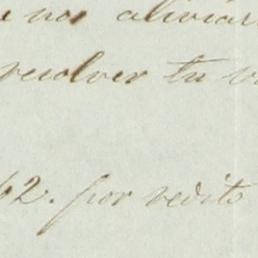 nos aliviar
resolver tu
62. por redito